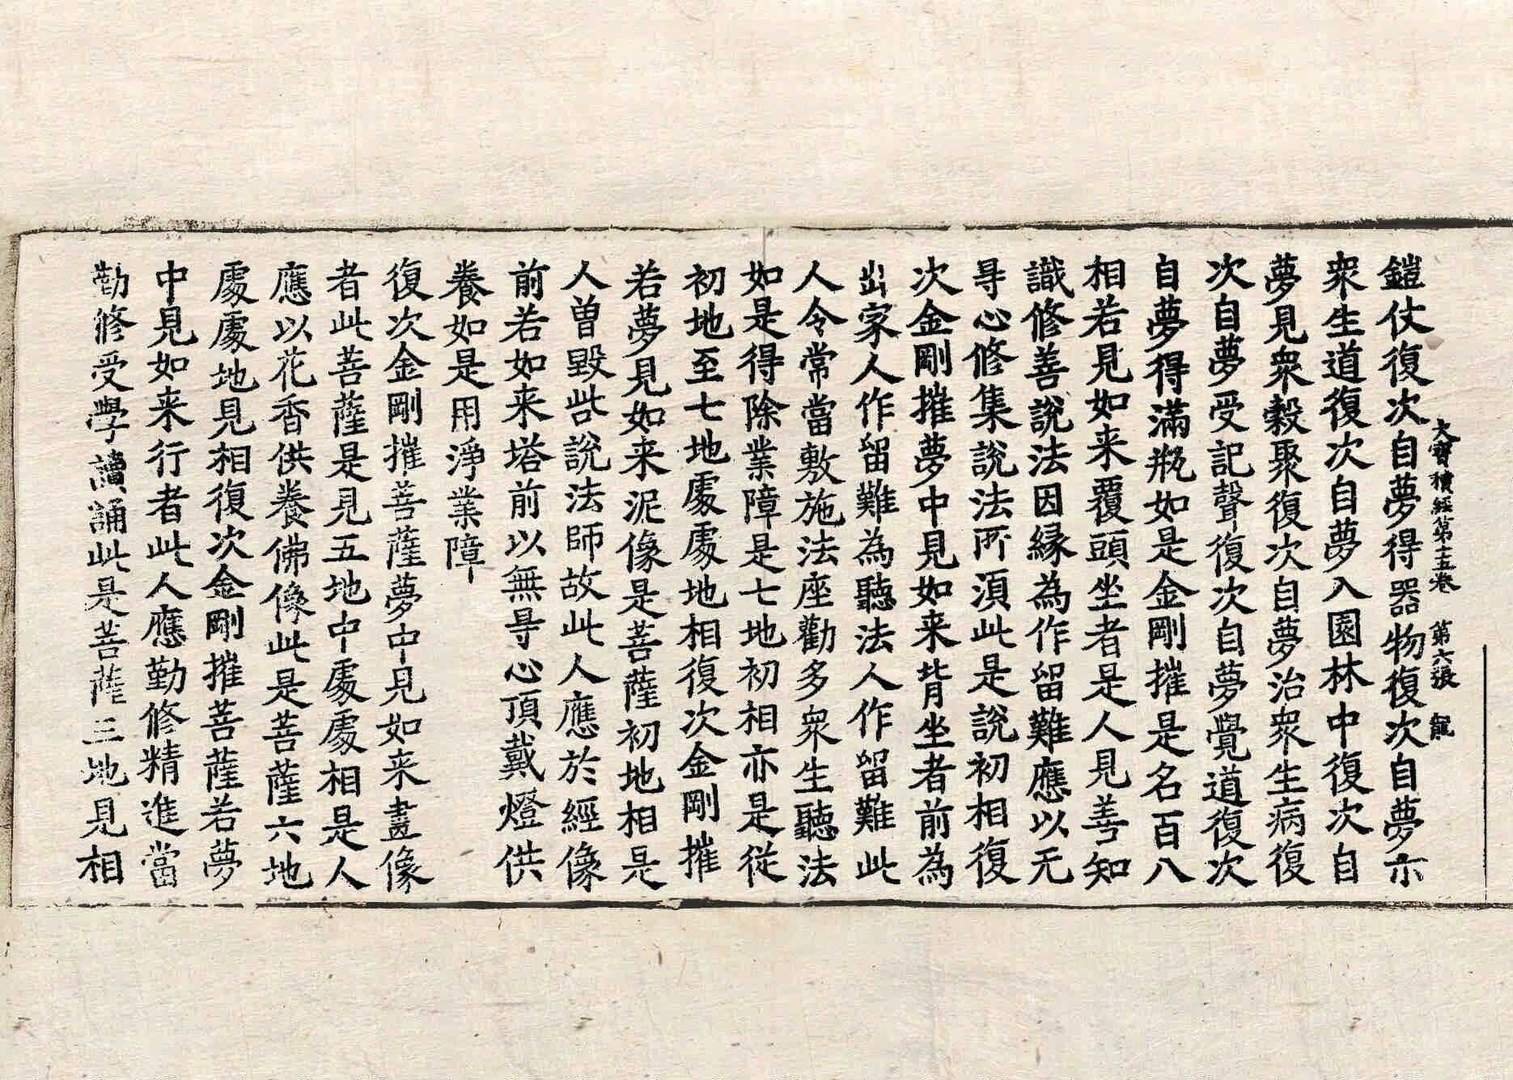 大寶積經第十五卷 第六張 龍
鎧仗復次自夢得器物復次自夢示
衆生道復次自夢入園林中復次自
夢見衆穀聚復次自夢治衆生病復
次自夢受記聲復次自夢覺道復次
自夢得滿瓶如是金剛摧是名百八
相若見如来覆頭坐者是人見善知
識修善說法因緣為作留難應以无
㝵心修集說法所湏此是說初相復
次金剛摧夢中見如来背坐者前為
出家人作留難為聽法人作留難此
人令常當敷施法座勸多衆生聽法
如是得除業障是七地初相亦是從
初地至七地處處地相復次金剛摧
若夢見如来泥像是菩薩初地相是
人曽毀呰說法師故此人應於經像
前若如来塔前以無㝵心頂戴燈供
養如是用淨業障
復次金剛摧菩薩夢中見如来畫像
者此菩薩是見五地中處處相是人
應以花香供養佛像此是菩薩六地
處處地見相復次金剛摧菩薩若夢
中見如来行者此人應勤修精進當
勤修受學讀誦此是菩薩三地見相